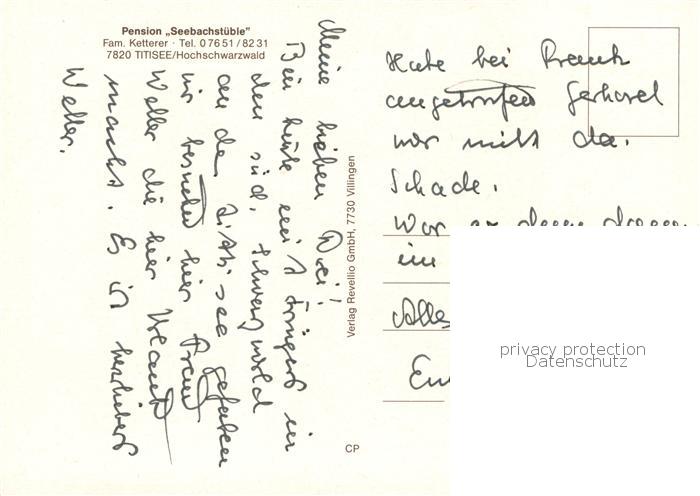 Pension „Seebachstüble"
Fam. Ketterer · Tel. 0 76 51 / 82 31
7820 TITISEE/Hochschwarzwald
Meine lieben Drei!
Bin heute mit in
den süd. Schwarzwald
an den Titisee gefahren
wir hier Frau
Weller die hier Urlaub
macht. Es ist herrliches
Wetter.
Verlag Revellio GmbH, 7730 Villingen
CP
Habe bei
angerufen Gerhard
war nicht da.
Schade.
War er denn
im
Alles
privacy protection
Datenschutz